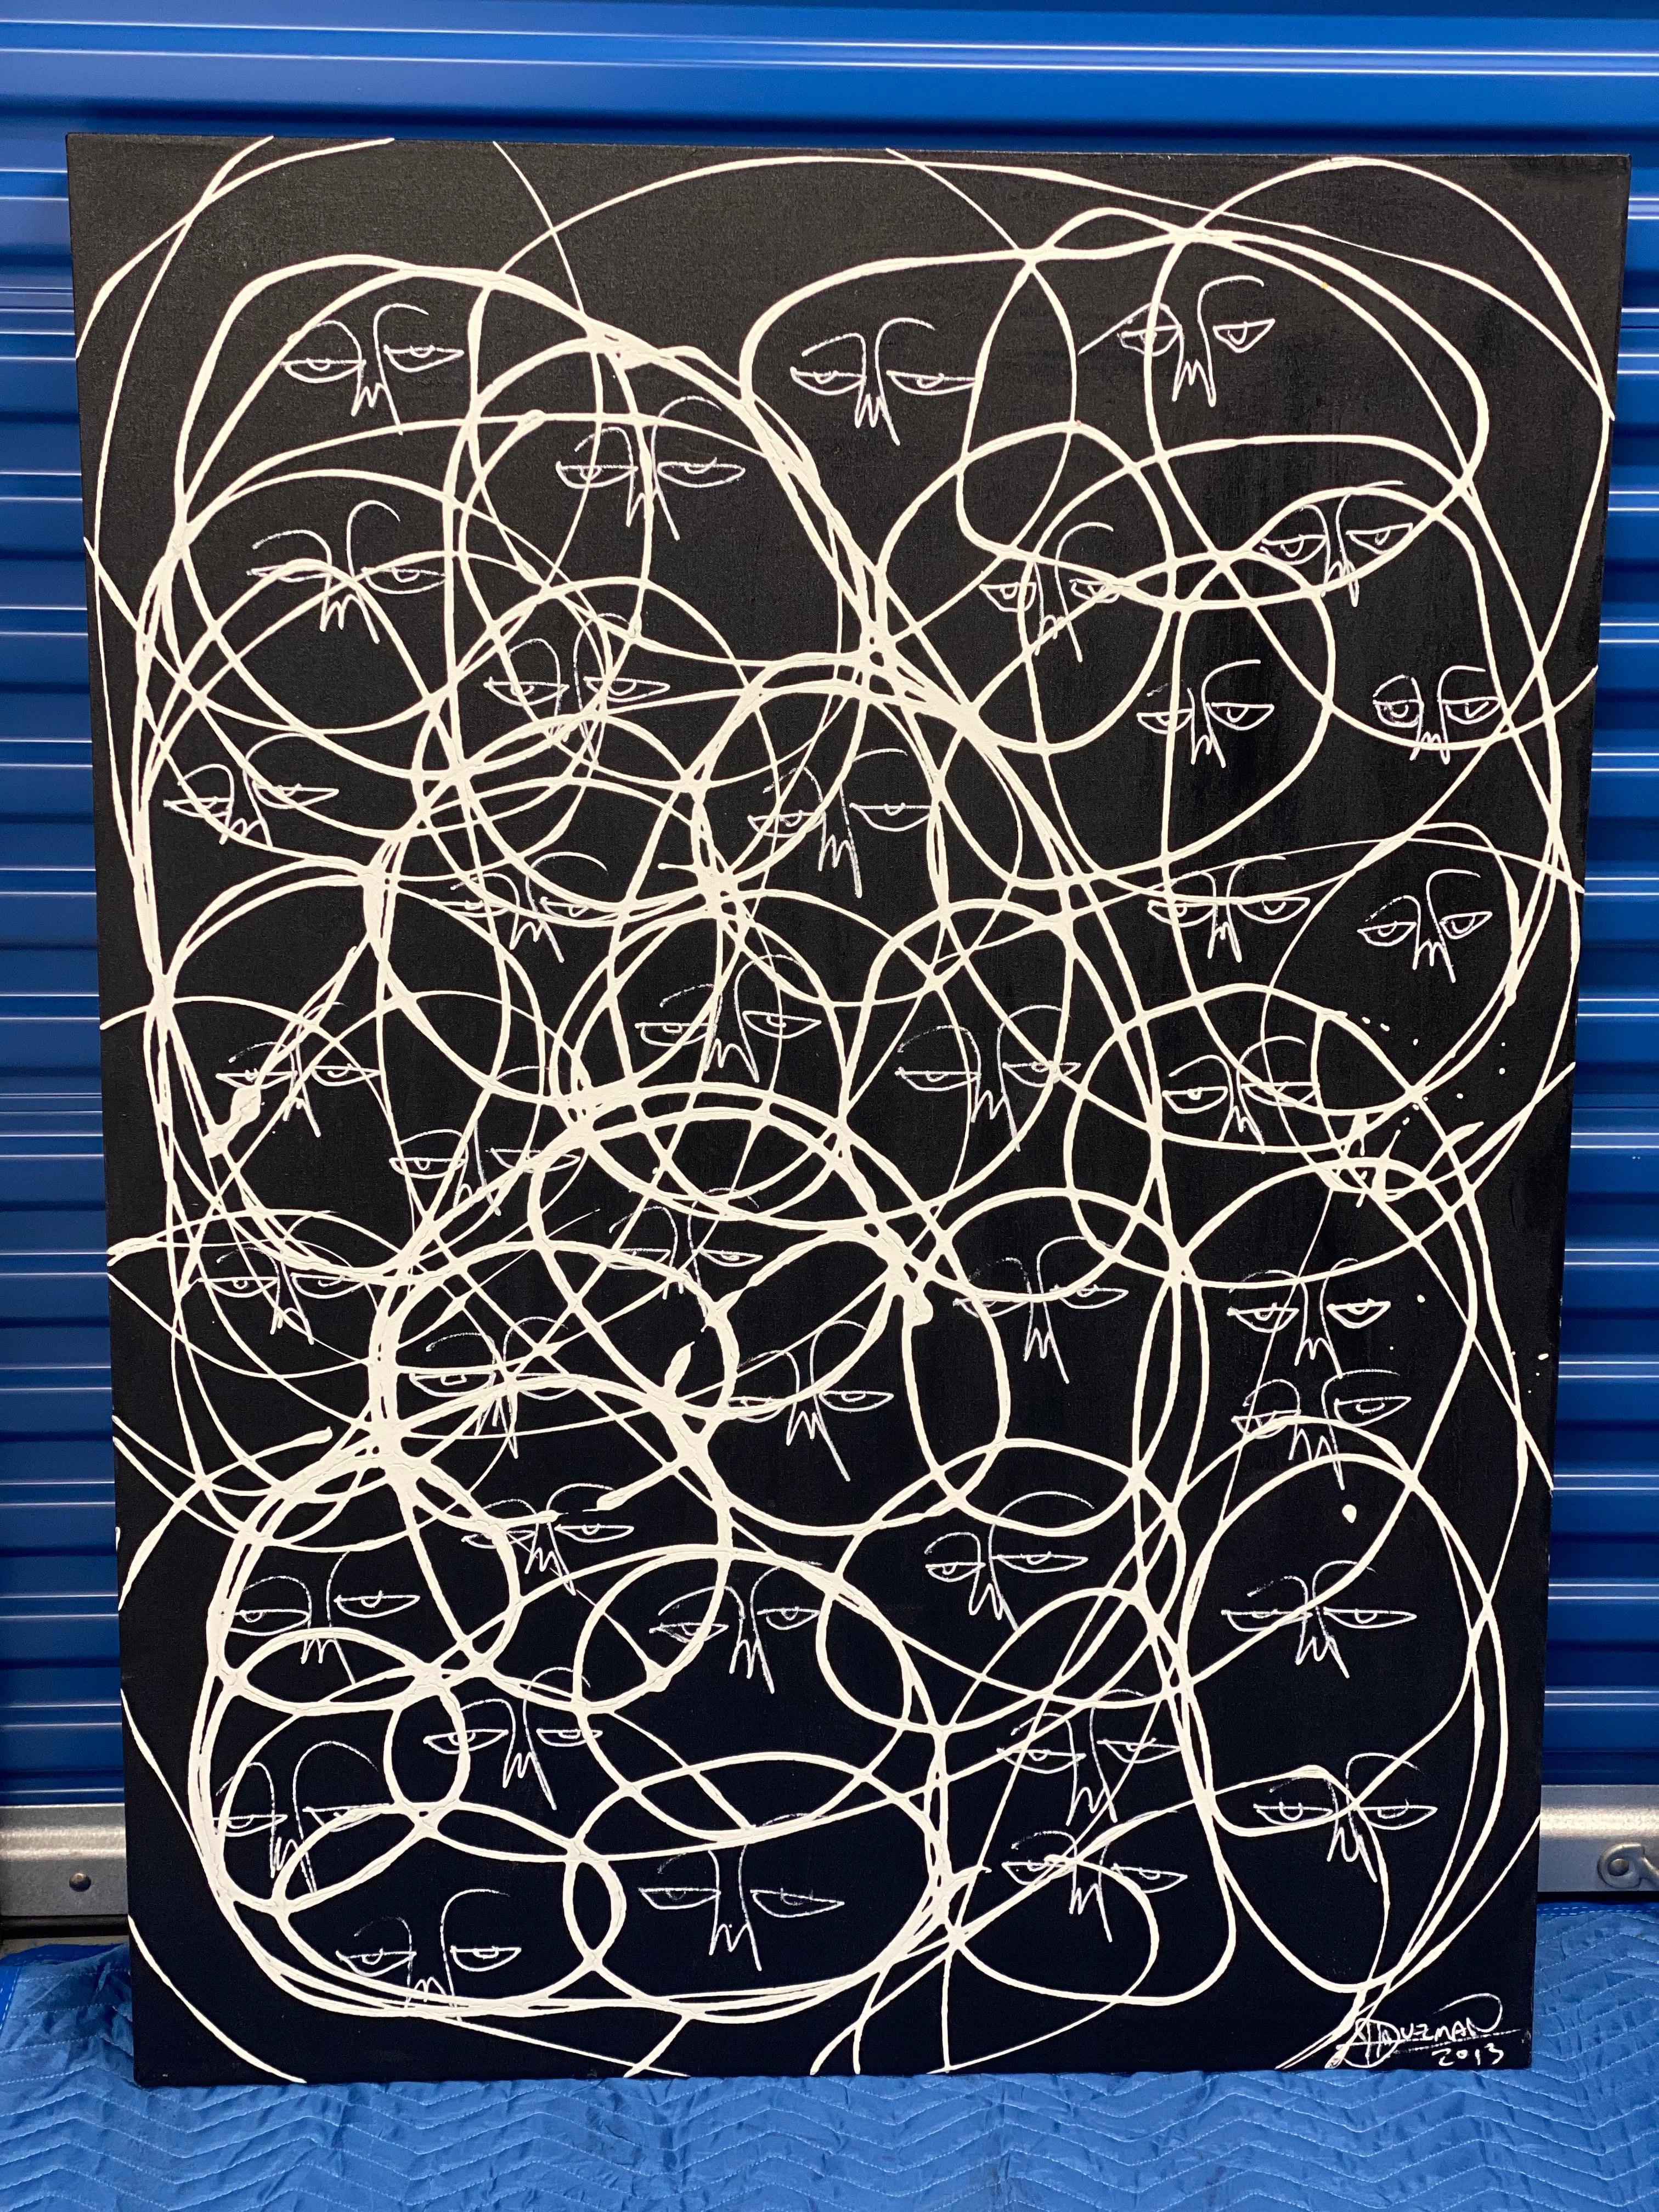 GUZMAN
2013